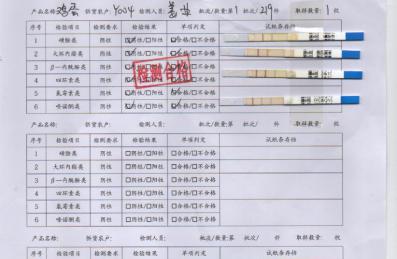 产品名称: 鸡蛋 供货农户: Y004 检测人员: 批次/数量:第 1 批次/ 219 件 取样数量: 1 枚
序号 检验项目 检测要求 检验结果 单项判定 试纸条存档
1 磺胺类 阴性 ☑阴性/□阳性 ☑合格/□不合格
2 大环内酯类 阴性 ☑阴性/□阳性 ☑合格/□不合格
3 β-内酰胺类 阴性 ☑阴性/□阳性 ☑合格/□不合格
4 四环素类 阴性 ☑阴性/□阳性 ☑合格/□不合格
5 氟霉素类 阴性 ☑阴性/□阳性 ☑合格/□不合格
6 喹诺酮类 阴性 ☑阴性/□阳性 ☑合格/□不合格
检测合格
产品名称: 供货农户: 检测人员: 批次/数量:第 批次/ 件 取样数量: 枚
序号 检验项目 检测要求 检验结果 单项判定 试纸条存档
1 磺胺类 阴性 □阴性/□阳性 □合格/□不合格
2 大环内酯类 阴性 □阴性/□阳性 □合格/□不合格
3 β-内酰胺类 阴性 □阴性/□阳性 □合格/□不合格
4 四环素类 阴性 □阴性/□阳性 □合格/□不合格
5 氟霉素类 阴性 □阴性/□阳性 □合格/□不合格
6 喹诺酮类 阴性 □阴性/□阳性 □合格/□不合格
产品名称: 供货农户: 检测人员: 批次/数量:第 批次/ 件 取样数量: 枚
序号 检验项目 检测要求 检验结果 单项判定 试纸条存档